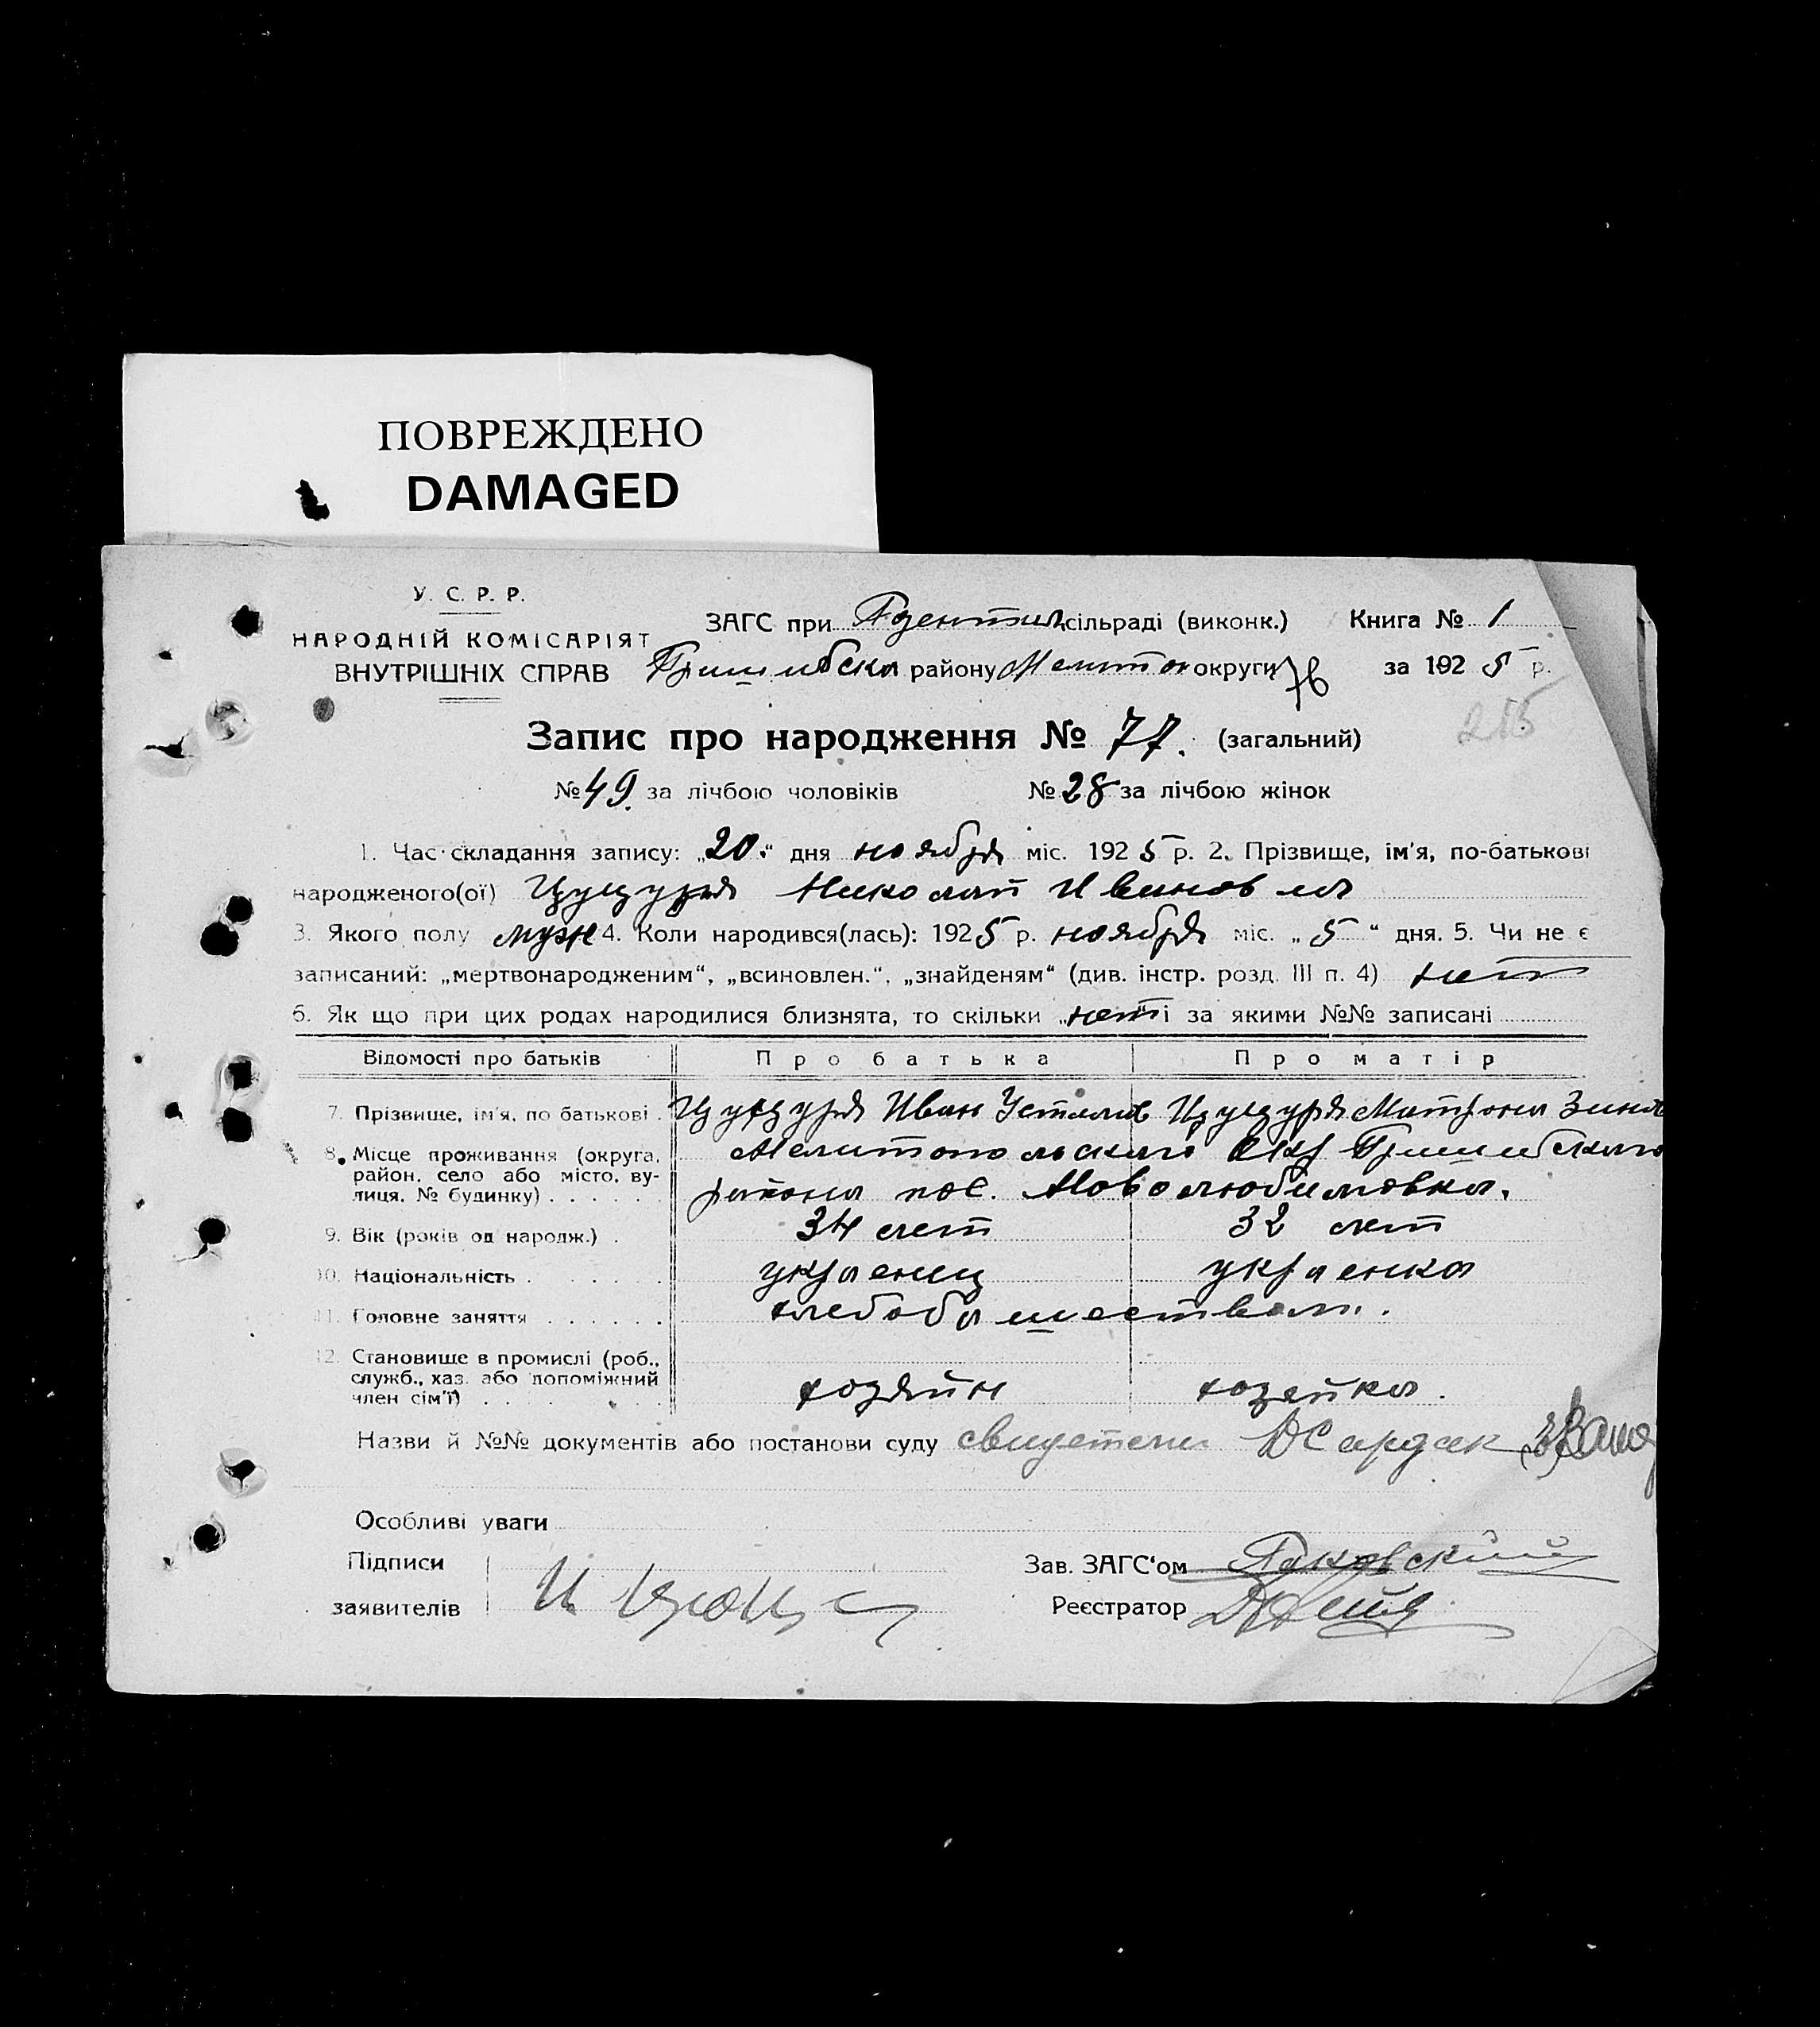 ПОВРЕЖДЕНО
DAMAGED
У. С. Р. Р.
НАРОДНІЙ КОМІСАРІЯТ
ВНУТРІШНІХ СПРАВ
ЗАГС при сільраді (виконк.) Книга № 1
району округи за 1925 р.
Запис про народження № 77. (загальний)
№ 49. за лічбою чоловіків № 28 за лічбою жінок
1. Час складання запису: „20." дня ноября міс. 1925 р. 2. Прізвище, ім'я, по-батькові
народженого(ої) Цуцуря Николай Иванов
3. Якого полу муж 4. Коли народився(лась): 1925 р. ноября міс. „5" дня. 5. Чи не є
записаний: „мертвонародженим", „всиновлен.", „знайденям" (див. інстр. розд. III п. 4) нет
6. Як що при цих родах народилися близнята, то скільки „нет" і за якими №№ записані
Відомості про батьків Про батька Про матір
7. Прізвище, ім'я, по батькові Цуцуря Иван Цуцуря Матрона
8. Місце проживання (округа, Мелитопольскаго Окр
район, село або місто, ву- района пос. Новолюбимовка.
лиця, № будинку)
9. Вік (років од народж.) 34 лет 32 лет
10. Національність украенец украенка
11. Головне заняття
12. Становище в промислі (роб.,
служб., хаз. або допоміжний
член сім'ї) хозяйн хозяйка.
Назви й №№ документів або постанови суду свидетели Сардак
Особливі уваги
Підписи
заявителів
Зав. ЗАГС'ом
Реєстратор
215